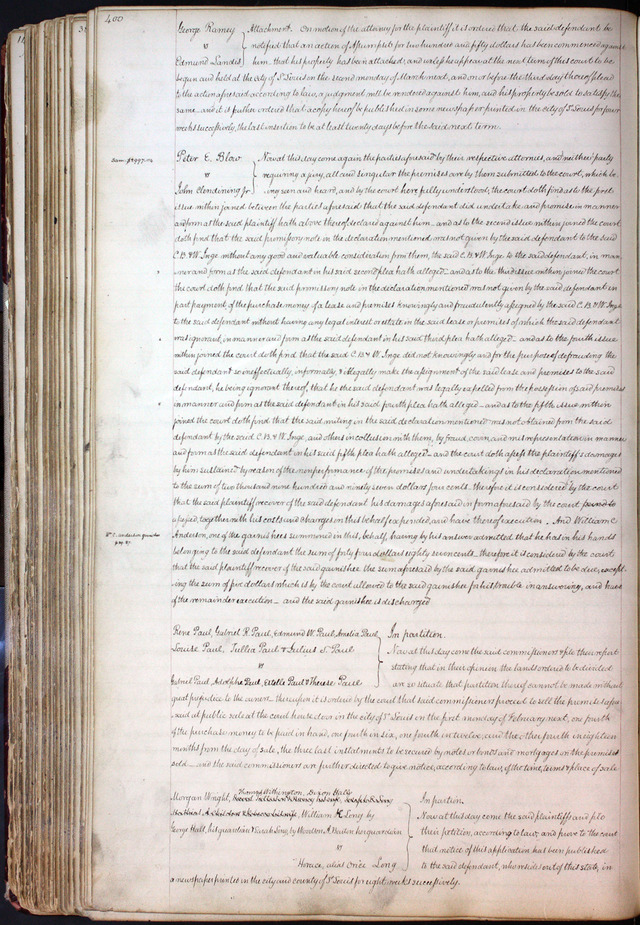 400
George Ramey } Attachment. On motion of the attorney for the plaintiff it is ordered that the said defendant be
v notified that an action of Assumpsit for two hundred and fifty dollars has been commenced against
Edmund Landis him, that his property has been attached, and unless he appear at the next term of this court to be
begun and held at the city of St Louis on the second monday of March next, and on or before the third day thereof plead
to the action aforesaid according to law, a judgment will be rendered against him, and his property be sold to satisfy the
same. and it is further ordered that a copy hereof be published in some newspaper printed in the city of St Louis for four
weeks successively, the last insertion to be at least twenty days before the said next term.
Dam. $2997.04
Peter E. Blow } Now at this day come again the parties aforesaid by their respective attornies, and neither party
v requiring a jury, all and singular the premises are by them submitted to the court, which be
John Clendining jr ing seen and heard, and by the court here fully understood, the court doth find as to the first
issue within joined between the parties aforesaid that the said defendant did undertake and promise in manner
and form as the said plaintiff hath above thereof declared against him. and as to the second issue within joined the court
doth find that the said promissory note in the declaration mentioned was not given by the said defendant to the said
C. B. & W. Inge without any good and valuable consideration from them, the said C. B. & W. Inge to the said defendant, in man
ner and form as the said defendant in his said second plea hath alleged. and as to the third issue within joined the court
the court doth find that the said promissory note in the declaration mentioned was not given by the said defendant in
part payment of the purchase money of a lease and premises knowingly and fraudulently assigned by the said C. B. & W. Inge
to the said defendant without having any legal interest or estate in the said lease or premises of which the said defendant
was ignorant, in manner and form as the said defendant in his said third plea hath alleged. and as to the fourth issue
within joined the court doth find that the said C. B. & W. Inge did not knowingly and for the purpose of defrauding the
said defendant so ineffectually, informally, & illegally make the assignment of the said lease and premises to the said
defendant, he being ignorant thereof, that he the said defendant was legally expelled from the possession of said premises
in manner and form as the said defendant in his said fourth plea hath alleged and as to the fifth issue within
joined the court doth find that the said writing in the said declaration mentioned was not obtained from the said
defendant by the said C. B. & W. Inge, and others in collusion with them, by fraud, covin, and misrepresentation in manner
and form as the said defendant in his said fifth plea hath alleged and the court doth assess the plaintiff's damages
by him sustained by reason of the nonperformance of the promises and undertakings in his declaration mentioned
to the sum of two thousand nine hundred and ninety seven dollars four cents. therefore it is considered by the court
that the said plaintiff recover of the said defendant his damages aforesaid in form aforesaid by the court
assessed, together with his costs and charges in this behalf expended, and have thereof execution. And William C.
Wm C. Anderson garnishee
Anderson, one of the garnishees summoned in this, behalf, having by his answer admitted that he has in his hands
belonging to the said defendant the sum of forty four dollars eighty seven cents. therefore it is considered by the court
that the said plaintiff recover of the said garnishee the sum aforesaid by the said garnishee admitted to be due, except-
ing the sum of five dollars which is by the court allowed to the said garnishee for his trouble in answering, and have
of the remainder execution and the said garnishee is discharged
Rene Paul, Gabriel R. Paul, Edmund W. Paul, Amelia Paul } In partition.
Louise Paul, Tullia Paul & Julius S. Paul Now at this day come the said commissioners & file their report
v stating that in their opinion the lands ordered to be divided
Gabriel Paul, Adolphe Paul, Estelle Paul & Therese Paul are so situate that partition thereof cannot be made without
great prejudice to the owners. thereupon it is ordered by the court that said commissioners proceed to sell the premises afore
said at public sale at the court house door in the city of St Louis on the first monday of February next, one fourth
of the purchase money to be paid in hand, one fourth in six, one fourth in twelve, and the other fourth in eighteen
months from the day of sale, the three last instalments to be secured by notes or bonds and mortgages on the premises
sold and the said commissioners are further directed to give notice, according to law, of the time, terms & place of sale
Thomas Withington, Dixon Hall
Morgan Wright, William K Long by } In partition.
George Hall, his guardian & Sarah Long by her guardian Now at this day come the said plaintiffs and file
v their petition, according to law, and prove to the court
that notice of this application has been published
Horace, alias Once Long to the said defendant, who resides out of this state, in
a newspaper printed in the city and county of St Louis for eight weeks successively.